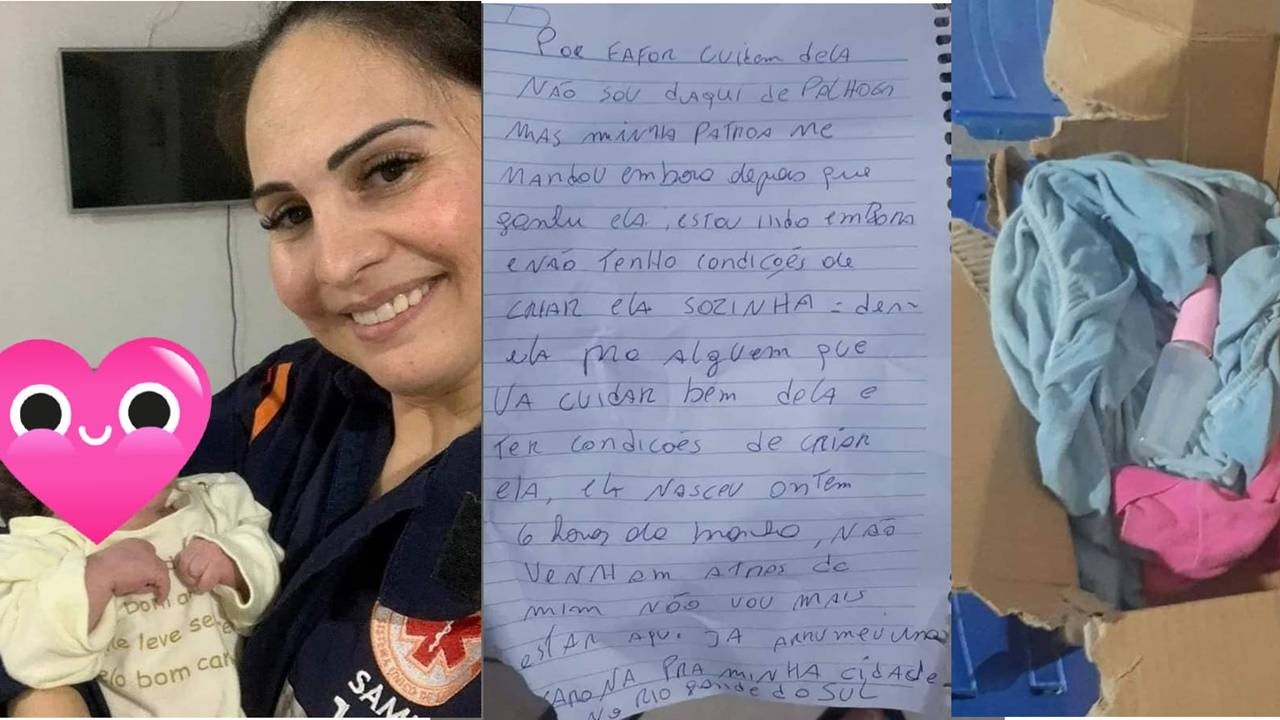 Por FAFOR CUidem delA
NÃO SOU dAqui de PALHOÇA
MAS minHA PATROA Me
MANDOU embora depois que
ganhei elA, estou indo emBora
e NÃO TenHO condições de
CRIAR elA SOZINHA = dem
elA pra Alguem que
VA CUIDAR bem delA e
TER condicões de criar
elA, elA NASCEU ONTem
6 horas da manha, NÃO
VeNHAm ATRAS de
mim NÃO VOU MAIS
esTAR Aqui. JA ARRUMEI UMA
CARONA PRA MINHA CIDADE
No RIO gRANde do SUL
bom
le leve se
elo bom
SISTEMA ÚNICO DE
SAM